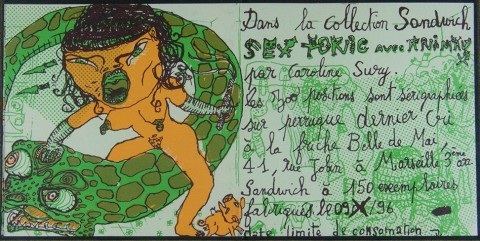 Dans la collection Sandwich
SEX TORIC avec ANIMAUX
par Caroline Sury.
Les positions sont sérigraphiées
sur perruque dernier Cri
à la friche Belle de Mai,
41, rue Jobin à Marseille 3ème
Sandwich à 150 exemplaires
fabriqués le 09 /96
date limite de consomation